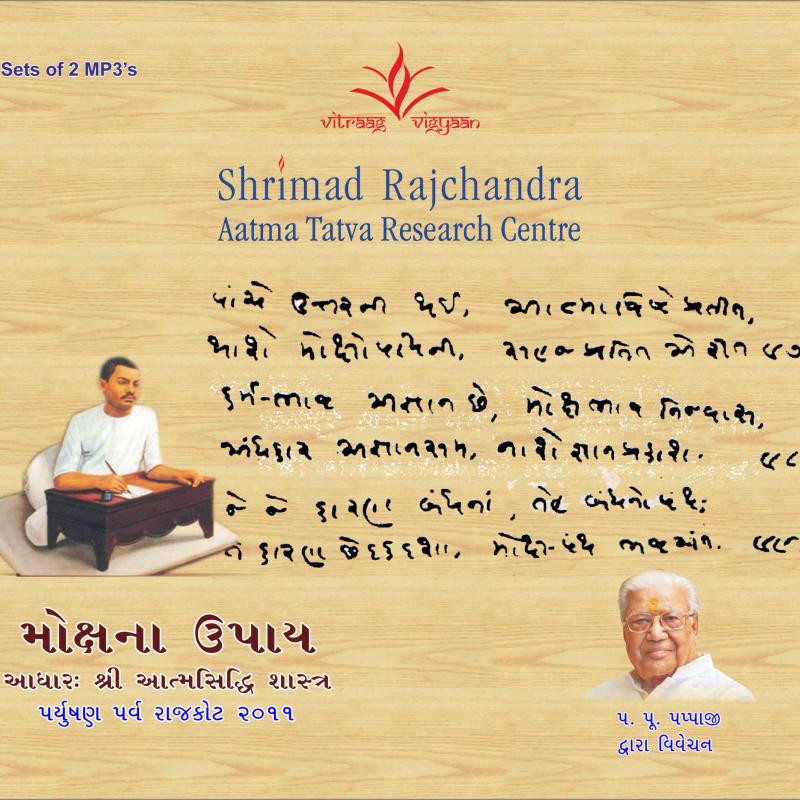 Sets of 2 MP3's
vitraag vigyaan
Shrimad Rajchandra
Aatma Tatva Research Centre
પાંચે ઉત્તરની થઈ, આત્મા વિષે પ્રતીત,
થાશે મોક્ષોપાયની, સહજ પ્રતિત એ રીત ૯૭
કર્મ-ભાવ અજ્ઞાન છે, મોક્ષ ભાવ નિજવાસ,
અંધકાર અજ્ઞાન સમ, નાશે જ્ઞાનપ્રકાશ. ૯૮
જે જે કારણ બંધનાં, તેહ બંધનો પંથ;
તે કારણ છેદક દશા, મોક્ષ-પંથ ભવઅંત. ૯૯
મોક્ષના ઉપાય
આધારઃ શ્રી આત્મસિદ્ધિ શાસ્ત્ર
પર્યુષણ પર્વ રાજકોટ ૨૦૧૧
પ. પૂ. પપ્પાજી
દ્વારા વિવેચન